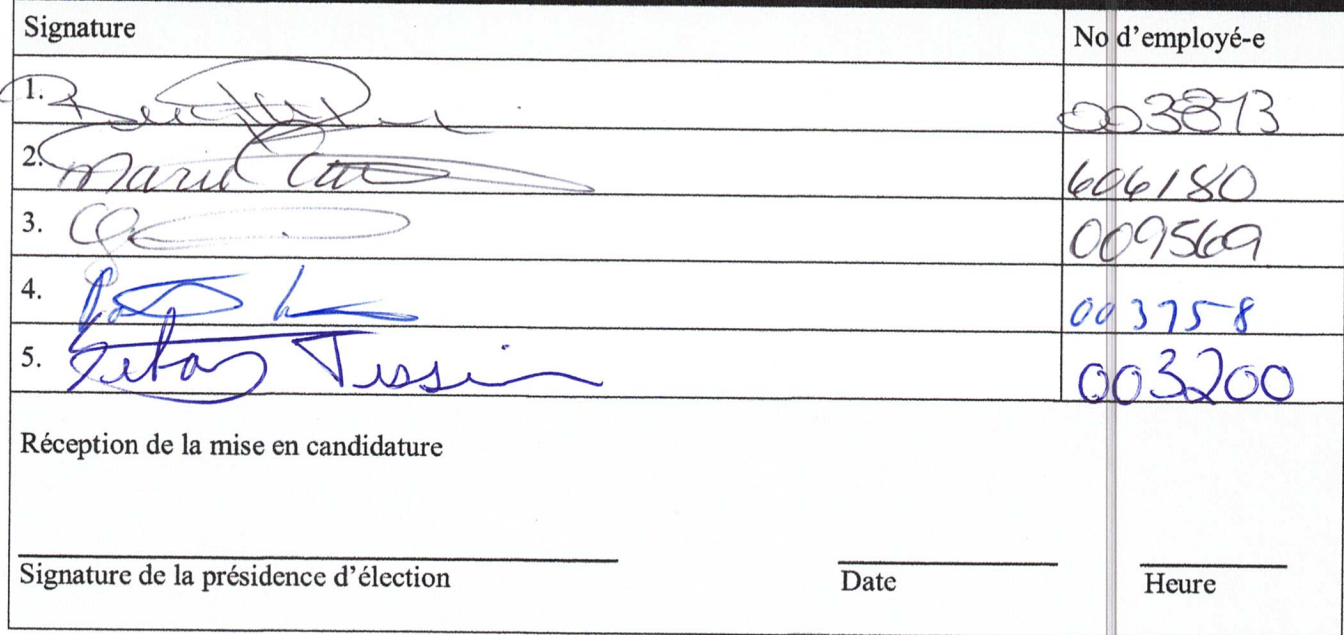 Signature No d'employé-e
1. 003873
2. Marie 606180
3. 009569
4. 003758
5. 003200
Réception de la mise en candidature
Signature de la présidence d'élection Date Heure